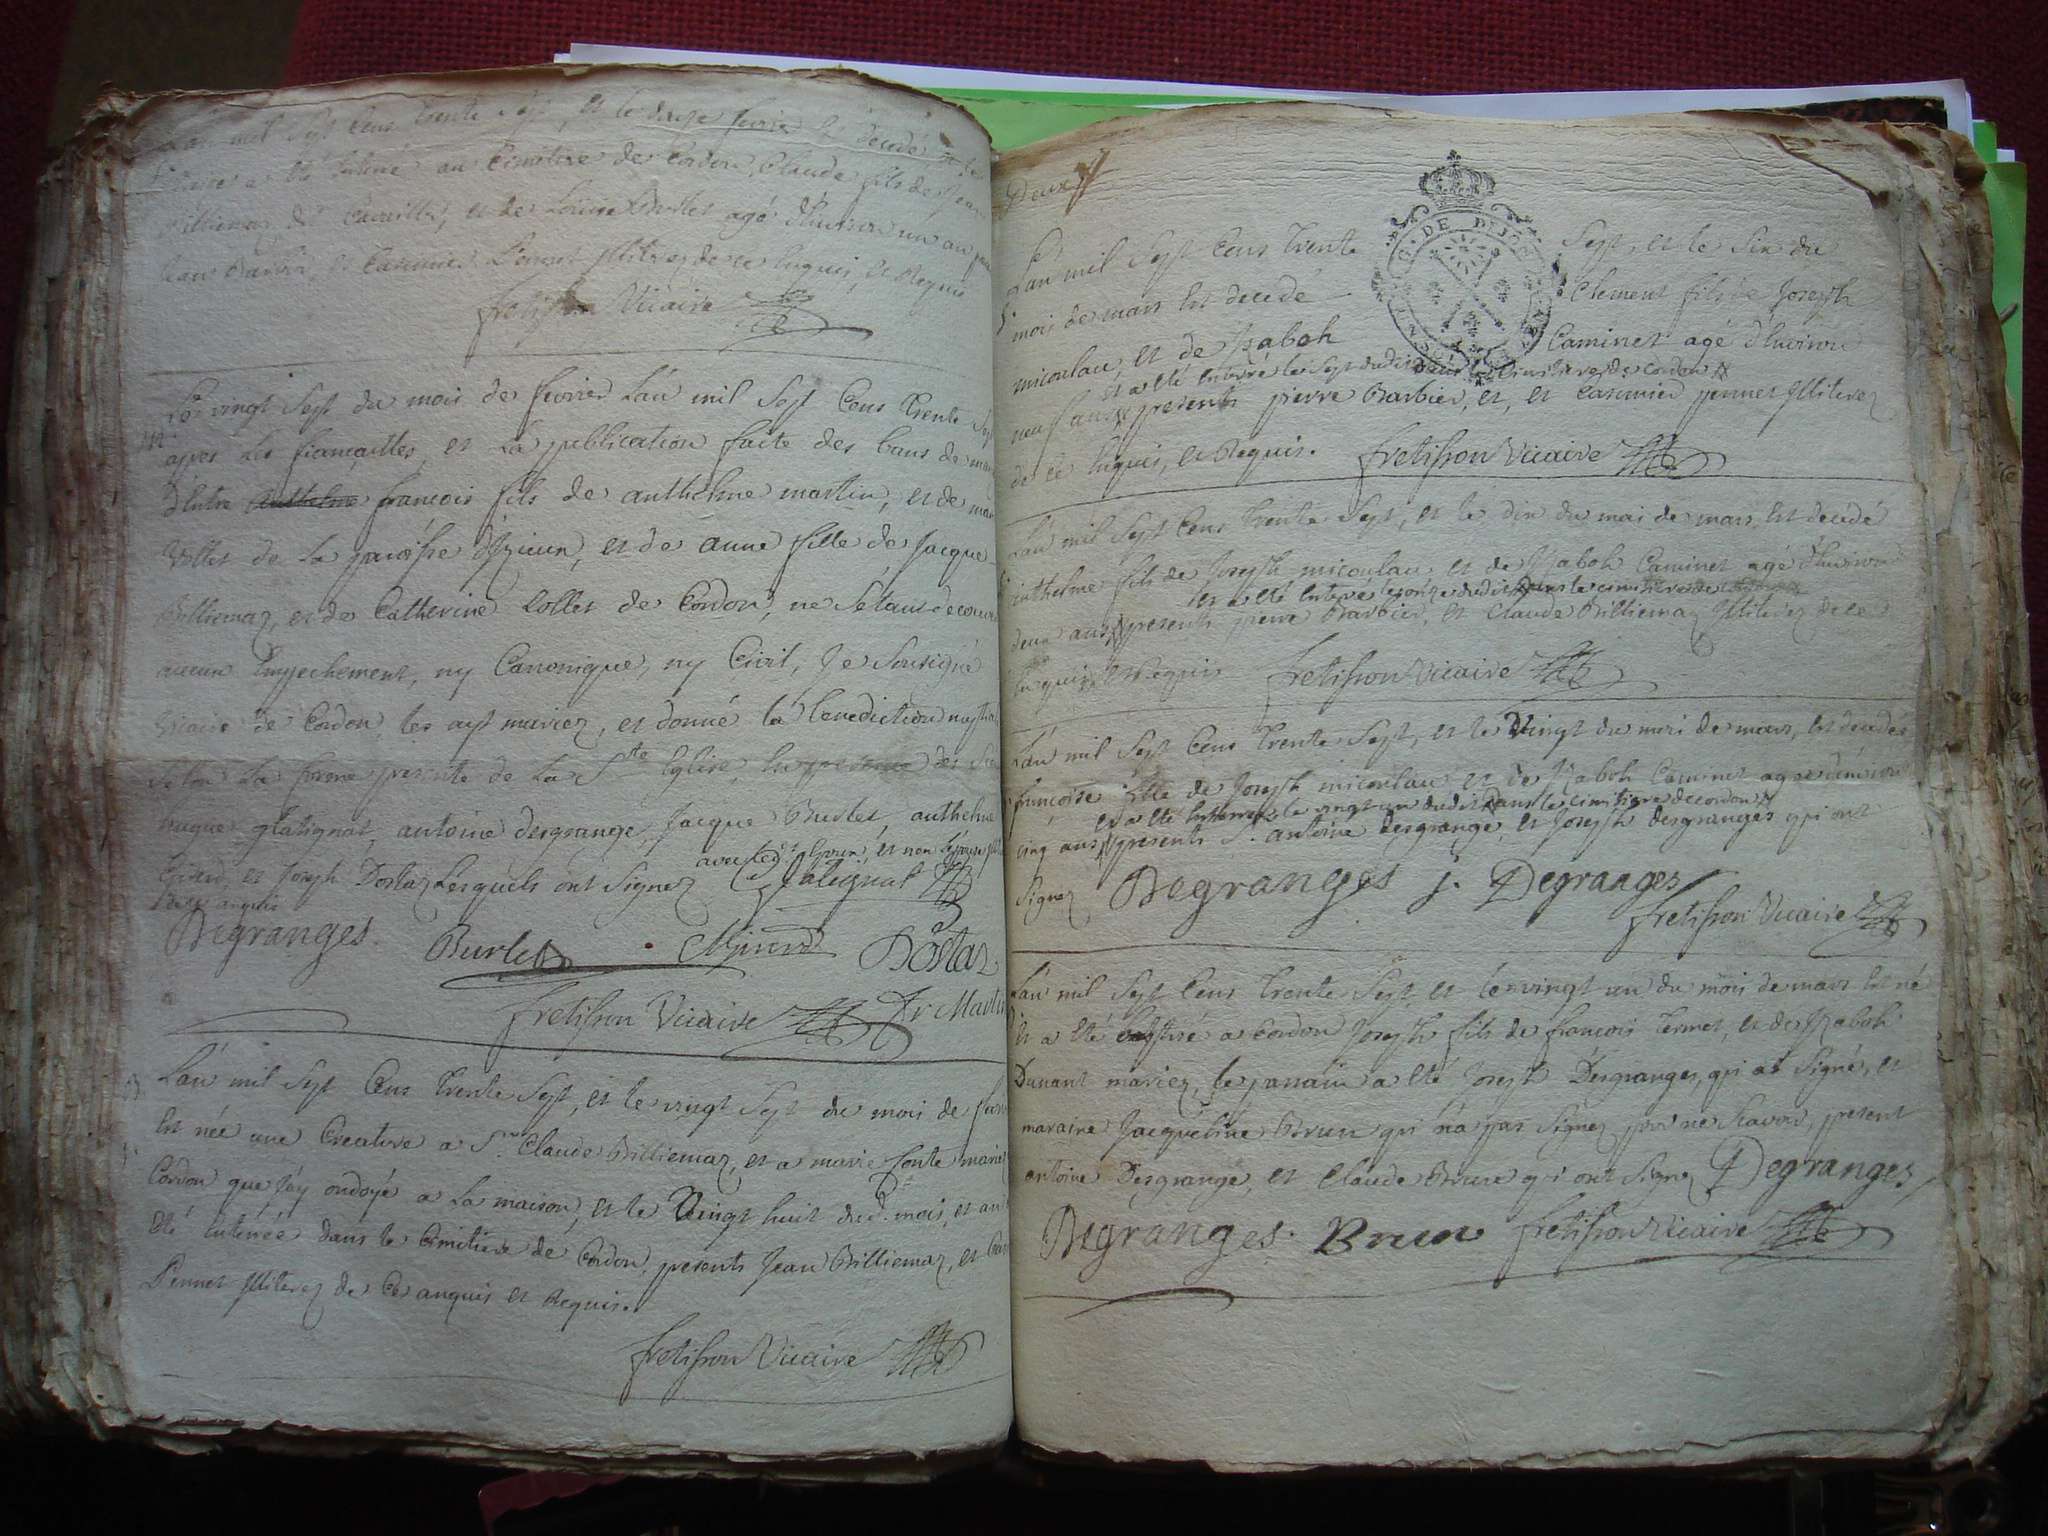 L'an mil sept cens trente sept, et le douze fevrier est decedé et le
a été enterré au cimetiere de Cordon, Claude fils de Jean
Billiemaz de et de Louise Burlet agé d'environ un an,
Barbier, et Casimier Pennet Illiterez de ce Enquis, et Requis
fretisson Vicaire
Le vingt sept du mois de fevrier L'an mil sept Cens trente sept
apres les fiançailles, et La publication faite des bans de
D'entre Anthelme françois fils de anthelme martin, et de
Vollet de La paroisse d'Izieux, et de anne fille de Jacque
Billiemaz, et de Catherine Collet de Cordon, ne s'etant decouvert
aucun Empechement, ny Canonique, ny Civil, Je Sousigné
Vicaire de Cordon, les ayt mariez, et donné la benediction
selon La forme presente de La Ste Eglise, des Srs
hugue glatignat, antoine desgrange, Jacque Burlet, anthelme
avec led. et non l'epouse
et Joseph Dostaz Lesquels ont signez Glatignat
Degranges. Burlet Dostaz
fretisson Vicaire fr Martin
L'an mil sept Cens trente sept, et le vingt sept du mois de
Est née une Creature a Sr. Claude Billiemaz, et a marie
Cordon que j'ay ondoyé a La maison, et le Vingt huit dud. mois, et an
été enterrée dans le Cimitiere de Cordon, presents Jean Billiemaz, et
Pennet Illiterez de Ce anquis et Requis.
fretisson Vicaire
Deux
G. DE DIJON
L'an mil sept Cens trente sept, et le six du
mois de mars est decedé Clement fils de Joseph
micoulau, et de Izaboh Caminet agé d'environ
et a été enterré le sept dudit dans le Cimitiere de Cordon
neuf ans presents pierre Barbier, et, et Casimier pennet Illiterez
de ce Enquis, et Requis. fretisson Vicaire
L'an mil sept Cens trente sept, et le dix du moi de mars est decedé
anthelme fils de Joseph micoulau, et de Izaboh Caminet agé d'environ
et a été enterré le onze dudit dans le cimitiere de
deux ans presents pierre Barbier, et Claude Billiemaz Illiterez de ce
Enquis et Requis fretisson Vicaire
L'an mil sept Cens trente sept, et le Vingt du moi de mars, est decedée
françoise fille de Joseph micoulau et de Izaboh Caminet agee d'environ
et a été enterrée le vingt un dudit dans le cimitiere de cordon
cinq ans presents Sr. antoine desgrange, et Joseph desgranges qui ont
signez Degranges j. Degranges
fretisson Vicaire
L'an mil sept Cens trente sept, et le vingt un du mois de mars est né
et a été Baptisé a Cordon Joseph fils de françois termet, et de Izaboh
Dunant mariez, le parrain a été Joseph Desgranges, qui at signé, et
maraine Jacqueline Brun qui n'a pas signez pour ne Scavoir, present
antoine Desgrange, et Claude Brun qui ont signez Degranges
Degranges. Brun fretisson Vicaire